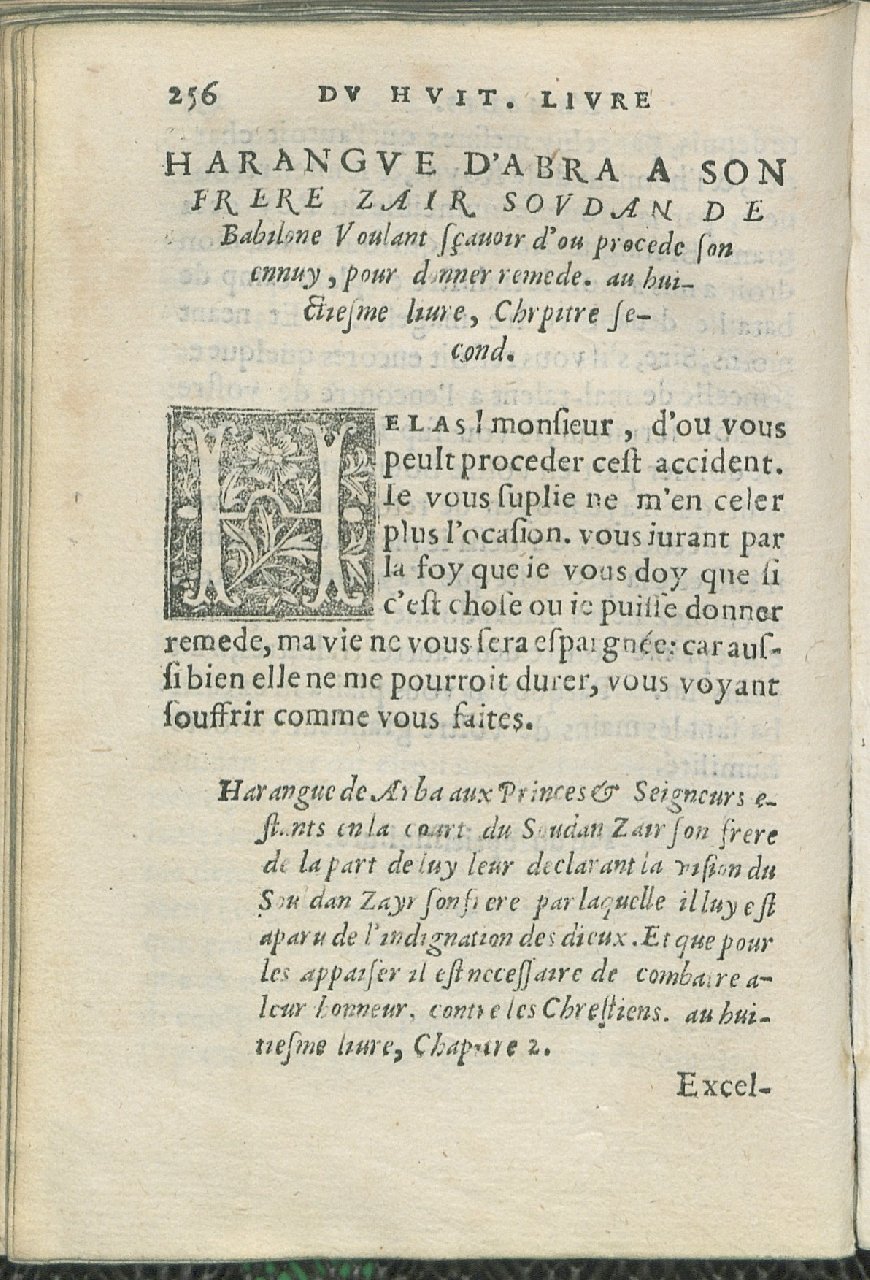 256 DV HVIT. LIVRE
HARANGVE D'ABRA A SON
FRERE ZAIR SOVDAN DE
Babilone Voulant sçauoir d'ou procede son
ennuy, pour donner remede. au hui-
ctiesme liure, Chrpitre se-
cond.
HELAS! monsieur, d'ou vous
peult proceder cest accident.
Ie vous suplie ne m'en celer
plus l'ocasion. vous iurant par
la foy que ie vous doy que si
c'est chose ou ie puisse donner
remede, ma vie ne vous sera espargnée: car aus-
si bien elle ne me pourroit durer, vous voyant
souffrir comme vous faites.
Harangue de Arba aux Princes & Seigneurs e-
stants en la court du Soudan Zair son frere
de la part de luy leur declarant la vision du
Soudan Zayr son frere par laquelle il luy est
aparu de l'indignation des dieux. Et que pour
les appaiser il est necessaire de combatre a-
leur honneur, contre les Chrestiens. au hui-
tiesme liure, Chapitre 2.
Excel-